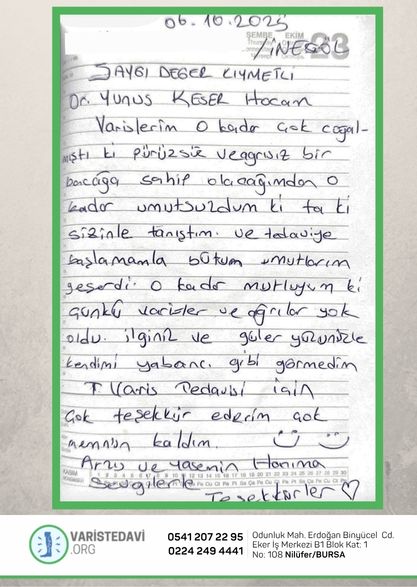 06.10.2025
ŞEMBE EKİM
23
İNEGÖL
SAYGI DEĞER KIYMETLİ
Dr. YUNUS KESER Hocam
Varislerim o kadar çok çoğal-
mıştı ki pürüzsüz ve ağrısız bir
bacağa sahip olacağımdan o
kadar umutsuzdum ki ta ki
sizinle tanıştım. ve tedaviye
başlamamla bütün umutlarım
yeşerdi. o kadar mutluyum ki
çünkü varisler ve ağrılar yok
oldu. ilginiz ve güler yüzünüzle
kendimi yabancı gibi görmedim
T Varis Tedavisi için
Çok teşekkür ederim çok
memnun kaldım.
Arzu ve Yasemin Hanıma
KASIM
Sevgilerle
Teşekkürler
VARİSTEDAVİ
.ORG
0541 207 22 95
0224 249 4441
Odunluk Mah. Erdoğan Binyücel Cd.
Eker İş Merkezi B1 Blok Kat: 1
No: 108 Nilüfer/BURSA